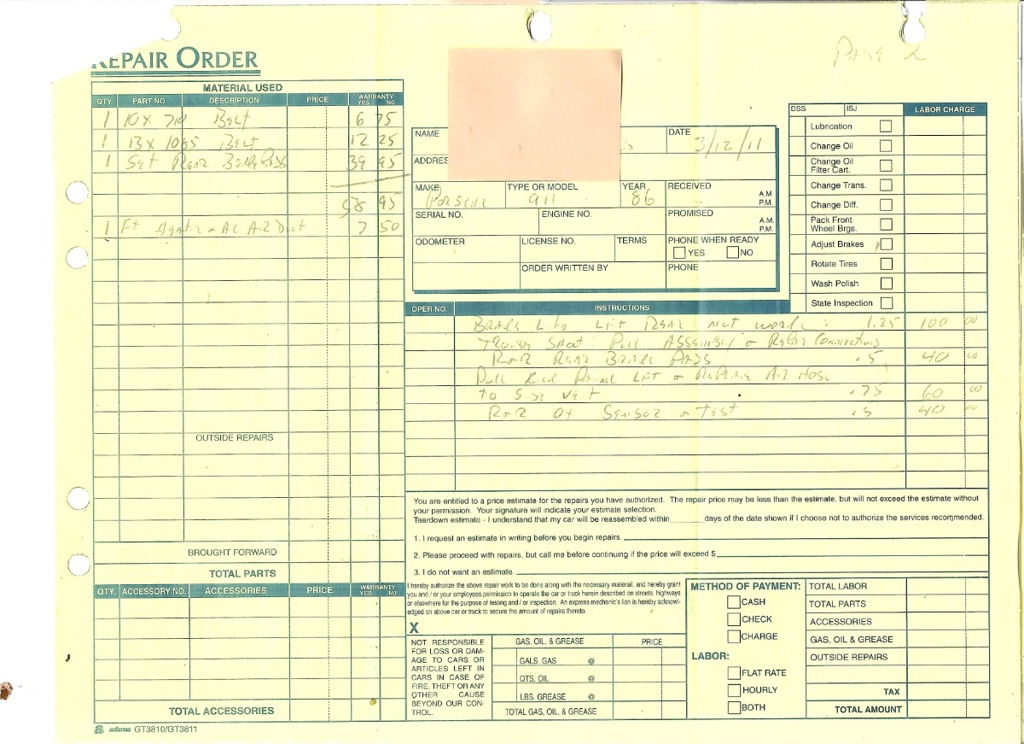 Page 2
REPAIR ORDER
MATERIAL USED
QTY. PART NO. DESCRIPTION PRICE WARRANTY YES NO
1 10 x 710 Belt 6 75
1 13 x 1085 Belt 12 25
1 Set Rear Brake Pads 39 95
58 95
1 Ft AC Air Duct 7 50
OUTSIDE REPAIRS
BROUGHT FORWARD
TOTAL PARTS
QTY. ACCESSORY NO. ACCESSORIES PRICE WARRANTY YES NO
TOTAL ACCESSORIES
adams GT3810/GT3811
NAME
DATE 3/12/11
ADDRES
MAKE Porsche
TYPE OR MODEL 911
YEAR 86
RECEIVED A.M. P.M.
SERIAL NO.
ENGINE NO.
PROMISED A.M. P.M.
ODOMETER
LICENSE NO.
TERMS
PHONE WHEN READY
YES NO
ORDER WRITTEN BY
PHONE
DSS ISJ LABOR CHARGE
Lubrication
Change Oil
Change Oil Filter Cart.
Change Trans.
Change Diff.
Pack Front Wheel Brgs.
Adjust Brakes
Rotate Tires
Wash Polish
State Inspection
OPER NO. INSTRUCTIONS
Brake Lite Left Rear not work: 1.25 100 00
Trouble Shoot: Pull Assembly & Repair Connections
R&R Rear Brake Pads .5 40 00
Pull Panel Left & Replace Air Hose
to Side Vent .75 60 00
R&R O2 Sensor & Test .5 40 00
You are entitled to a price estimate for the repairs you have authorized. The repair price may be less than the estimate, but will not exceed the estimate without
your permission. Your signature will indicate your estimate selection.
Teardown estimate - I understand that my car will be reassembled within days of the date shown if I choose not to authorize the services recommended.
1. I request an estimate in writing before you begin repairs.
2. Please proceed with repairs, but call me before continuing if the price will exceed $
3. I do not want an estimate.
I hereby authorize the above repair work to be done along with the necessary material, and hereby grant
you and / or your employees permission to operate the car or truck herein described on streets, highways
or elsewhere for the purpose of testing and / or inspection. An express mechanic's lien is hereby acknowl-
edged on above car or truck to secure the amount of repairs thereto.
X
NOT RESPONSIBLE
FOR LOSS OR DAM-
AGE TO CARS OR
ARTICLES LEFT IN
CARS IN CASE OF
FIRE, THEFT OR ANY
OTHER CAUSE
BEYOND OUR CON-
TROL.
GAS, OIL, & GREASE PRICE
GALS GAS @
QTS. OIL @
LBS. GREASE @
TOTAL GAS, OIL, & GREASE
METHOD OF PAYMENT:
CASH
CHECK
CHARGE
LABOR:
FLAT RATE
HOURLY
BOTH
TOTAL LABOR
TOTAL PARTS
ACCESSORIES
GAS, OIL & GREASE
OUTSIDE REPAIRS
TAX
TOTAL AMOUNT